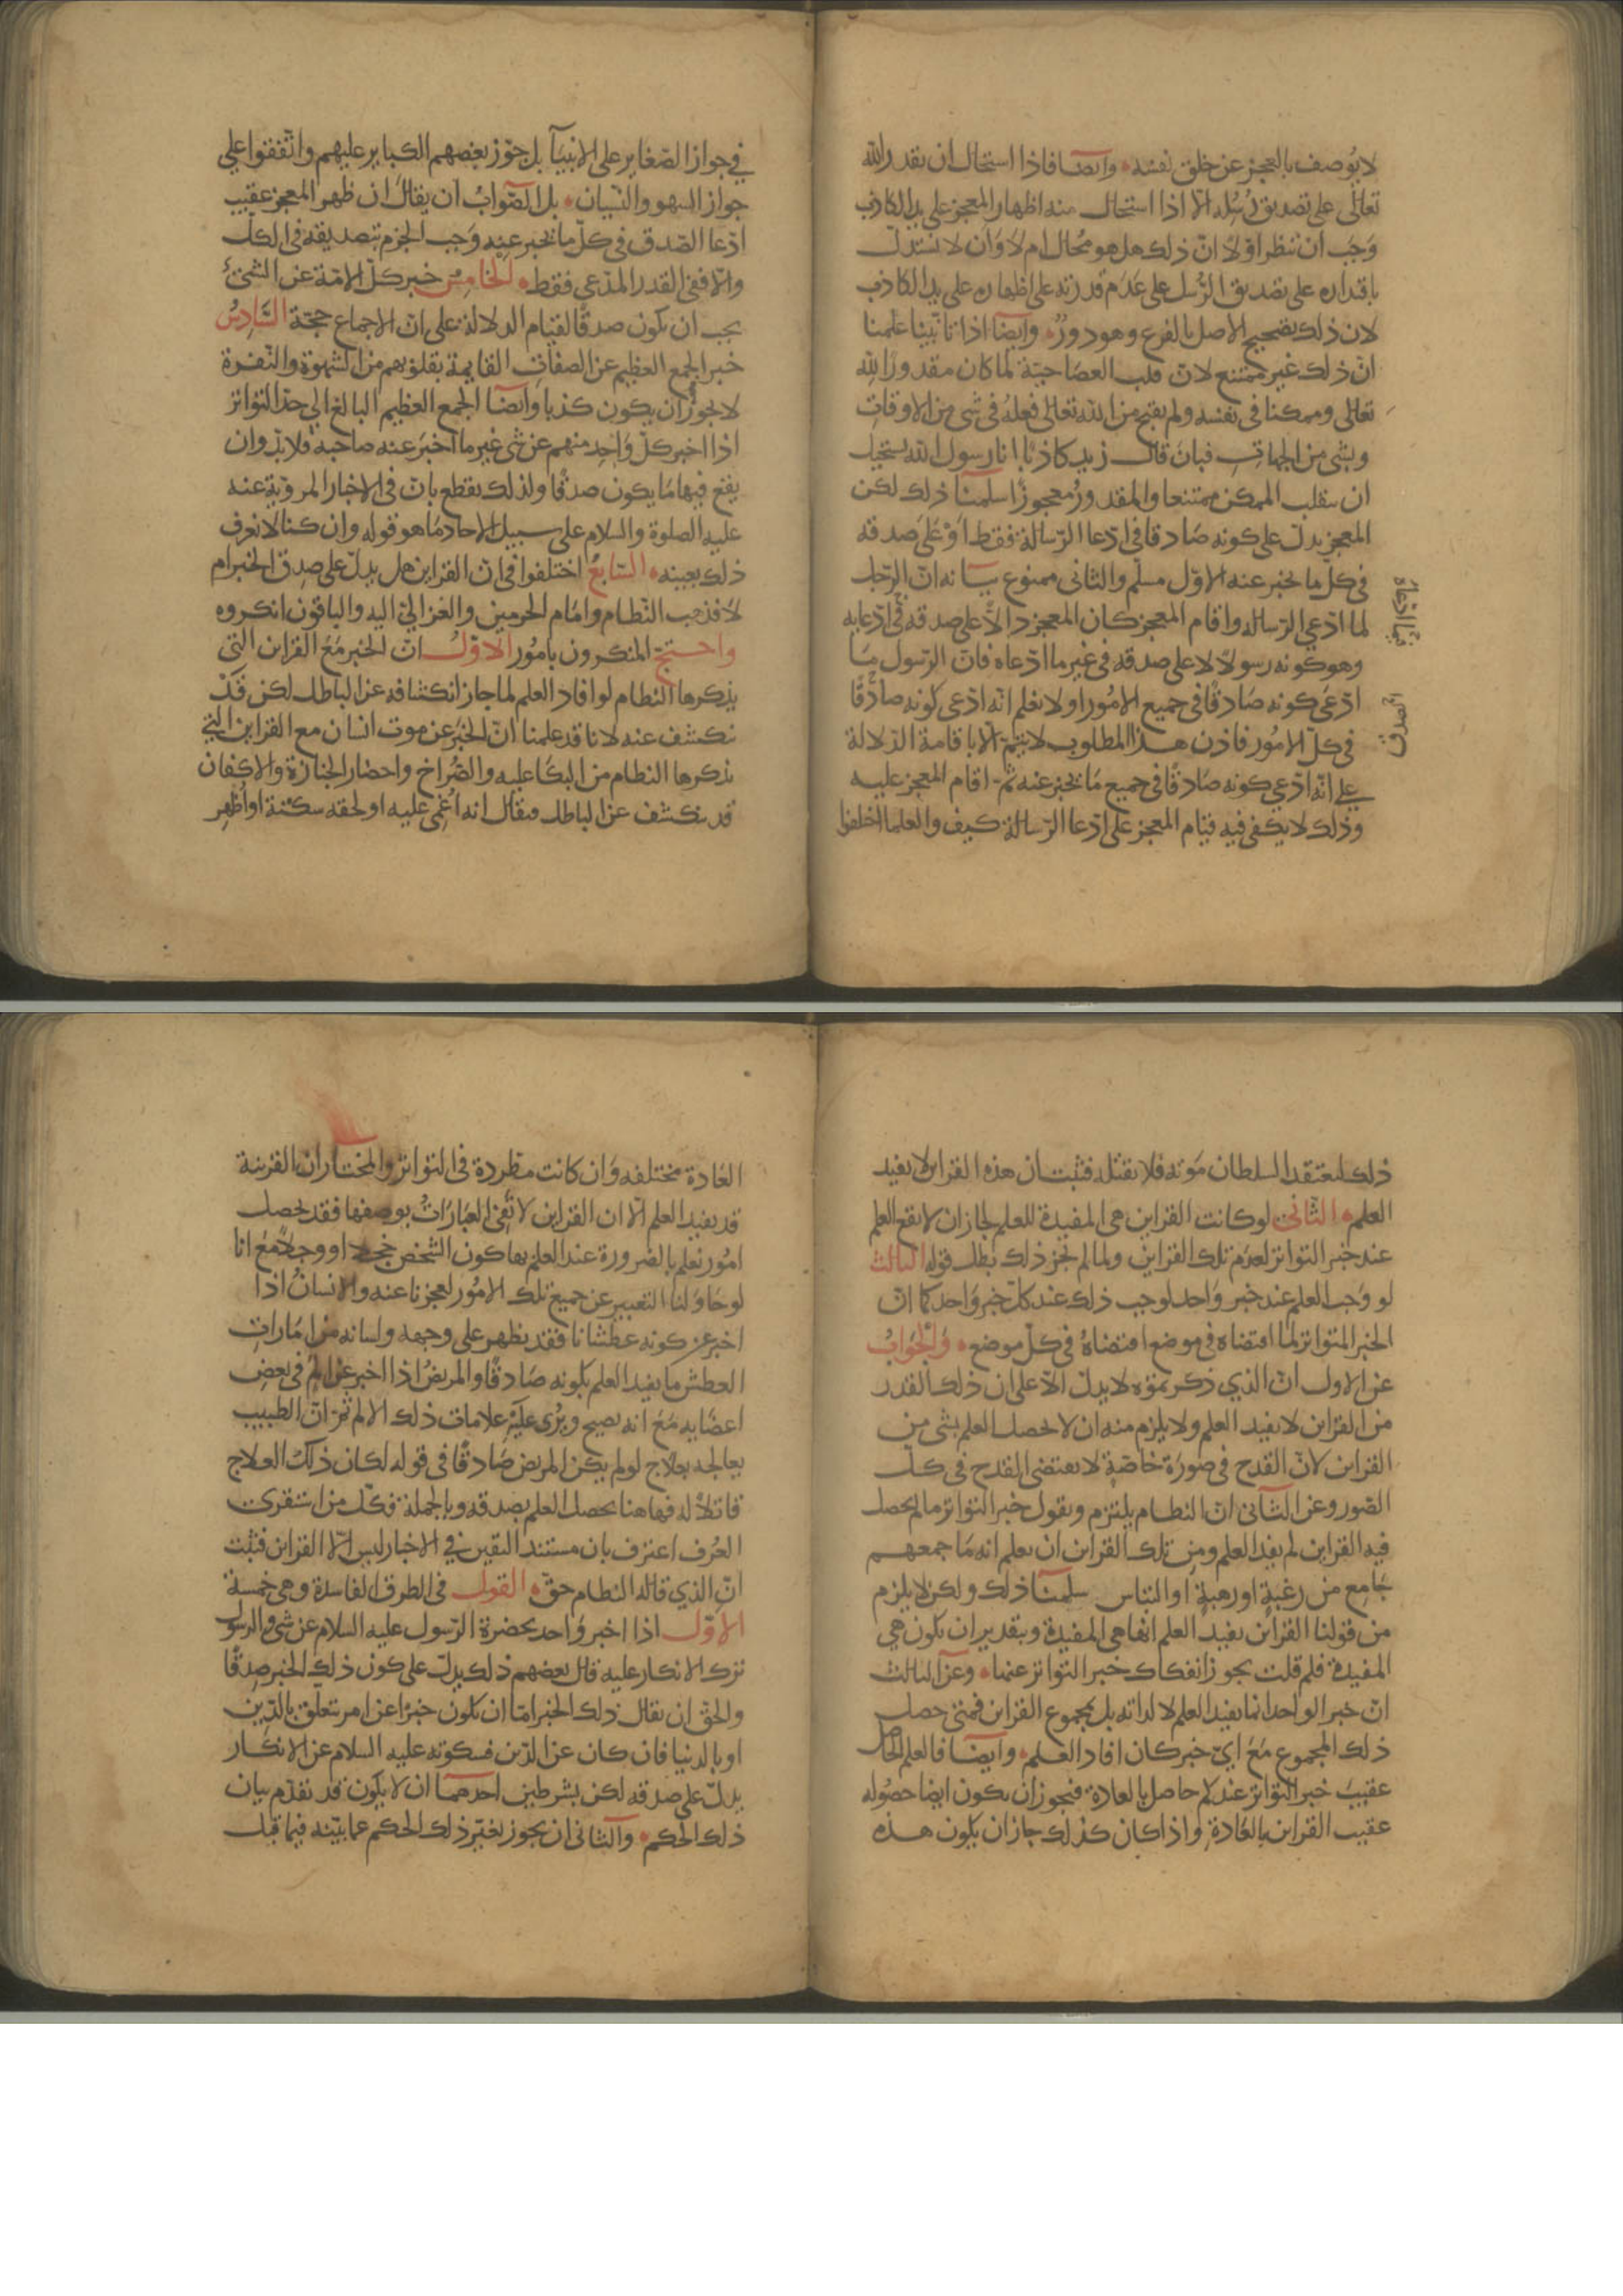 لا يوصف بالعجز عن خلق نفسه وايضا فاذا استحال ان يقدر الله
تعالى على تصديق رسله الا اذا استحال منه اظهار المعجز على يد الكاذب
وجب ان ننظر اولا ان ذلك هل هو محال ام لا وان لا نستدل
باقتداره على تصديق الرسل على عدم قدرته على اظهاره على يد الكاذب
لان ذلك تصحيح الاصل بالفرع وهو دور وايضا اذا تاتينا علمنا
ان ذلك غير ممتنع لان قلب العصا حية لما كان مقدورا لله
تعالى وممكنا في نفسه ولم يقبح من الله تعالى فعله في شى من الاوقات
وبشى من الجهات فبان قال زيد كاذبا انا رسول الله يستحيل
ان ينقلب الممكن ممتنعا والمقدور معجوزا سلمنا ذلك لكن
المعجز يدل على كونه صادقا في ادعا الرسالة فقط او على صدقه
في كل ما يخبر عنه الاول مسلم والثانى ممنوع بيانه ان الرجل
لما ادعى الرسالة واقام المعجز كان المعجز دالا على صدقه في ادعايه
وهو كونه رسولا لا على صدقه في غير ما ادعاه فان الرسول ما
ادعى كونه صادقا في جميع الامور او لا نعلم انه ادعى كونه صادقا
في كل الامور فاذن هذا المطلوب لا يتم الا باقامة الدلالة
على انه ادعى كونه صادقا في جميع ما يخبر عنه ثم اقام المعجز عليه
وذلك لا يكفى فيه قيام المعجز على ادعا الرسالة كيف والعلما اختلفوا
في جواز الصغاير على الانبيآ بل جوز بعضهم الكباير عليهم واتفقوا على
جواز السهو والنسيان بل الصواب ان يقال ان ظهر المعجز عقيب
ادعا الصدق في كل ما يخبر عنه وجب الجزم بتصديقه في الكل
والا ففى القدر المدعى فقط الخامس خبر كل الامة عن الشئ
يجب ان يكون صدقا لقيام الدلالة على ان الاجماع حجة السادس
خبر الجمع العظيم عن الصفات القايمة بقلوبهم من الشهوة والنفرة
لا يجوز ان يكون كذبا وايضا الجمع العظيم البالغ الى حد التواتر
اذا اخبر كل واحد منهم عن شى غير ما اخبر عنه صاحبه فلا بد وان
يقع فيها ما يكون صدقا ولذلك نقطع بان في الاخبار المروية عنه
عليه الصلوة والسلام على سبيل الاحاد ما هو قوله وان كنا لا نعرف
ذلك بعينه السابع اختلفوا في ان القراين هل يدل على صدق الخبر ام
لا فذهب النظام وامام الحرمين والغزالى اليه والباقون انكروه
واحتج المنكرون بامور الاول ان الخبر مع القراين التى
يذكرها النظام لو افاد العلم لما جاز انكشافه عن الباطل لكن قد
نكشف عنه لانا قد علمنا ان الخبر عن موت انسان مع القراين التي
يذكرها النظام من البكا عليه والصراخ واحضار الجنازة والاكفان
قد ينكشف عن الباطل فيقال انه اغمى عليه او لحقه سكتة او اظهر
ذلك لعتقد السلطان موته فلا يقتله فثبت ان هذه القراين لا يفيد
العلم الثانى لو كانت القراين هى المفيدة للعلم لجاز ان لا يقع العلم
عند خبر التواتر لعدم تلك القراين ولما لم يجز ذلك بطل قوله الثالث
لو وجب العلم عند خبر واحد لوجب ذلك عند كل خبر واحد كما ان
الخبر المتواتر لما اقتضاه في موضع اقتضاه في كل موضع والجواب
عن الاول ان الذي ذكرتموه لا يدل الا على ان ذلك القدر
من القراين لا يفيد العلم ولا يلزم منه ان لا يحصل العلم بشى من
القراين لان القدح في صورة خاصة لا يقتضى القدح في كل
الصور وعن الثانى ان النظام يلتزم ويقول خبر التواتر ما لم يحصل
فيه القراين لم يفد العلم ومن تلك القراين ان يعلم انه ما جمعهم
جامع من رغبة او رهبة او التباس سلمنا ذلك ولكن لا يلزم
من قولنا القراين يفيد العلم انها هى المفيدة وبتقدير ان يكون هي
المفيدة فلم قلت يجوز انفكاك خبر التواتر عنها وعن الثالث
ان خبر الواحد انما يفيد العلم لا لذاته بل بمجموع القراين فمتى حصل
ذلك المجموع مع اي خبر كان افاد العلم وايضا فالعلم الحاصل
عقيب خبر التواتر عندكم حاصل بالعادة فيجوز ان يكون ايضا حصوله
عقيب القراين بالعادة واذا كان كذلك جاز ان يكون هذه
العادة مختلفه وان كانت مطردة في التواتر والمختار ان القرينة
قد يفيد العلم الا ان القراين لا تفى العبارات بوصفها فقد يحصل
امور نعلم بالضرورة عند العلم بها كون الشخص خجلا او وجلا مع انا
لو حاولنا التعبير عن جميع تلك الامور لعجزنا عنه والانسان اذا
اخبر عن كونه عطشانا فقد يظهر على وجهه ولسانه من امارات
العطش ما يفيد العلم بكونه صادقا والمريض اذا اخبر عن الم في بعض
اعضايه مع انه يصيح ويرى عليه علامات ذلك الالم ثم ان الطبيب
يعالجه بعلاج لو لم يكن المريض صادقا في قوله لكان ذلك العلاج
قاتلا له فهاهنا يحصل العلم بصدقه وبالجملة فكل من استقرى
العرف اعترف بان مستند اليقين في الاخبار ليس الا القراين فثبت
ان الذي قاله النظام حق القول في الطرق الفاسدة وهى خمسة
الاول اذا اخبر واحد بحضرة الرسول عليه السلام عن شى والرسول
ترك الانكار عليه قال بعضهم ذلك يدل على كون ذلك الخبر صدقا
والحق ان يقال ذلك الخبر اما ان يكون خبرا عن امر يتعلق بالدين
او بالدنيا فان كان عن الدين فسكوته عليه السلام عن الانكار
يدل على صدقه لكن بشرطين احدهما ان لا يكون قد تقدم بيان
ذلك الحكم والثانى ان يجوز تغير ذلك الحكم عما بينه فيما قبل